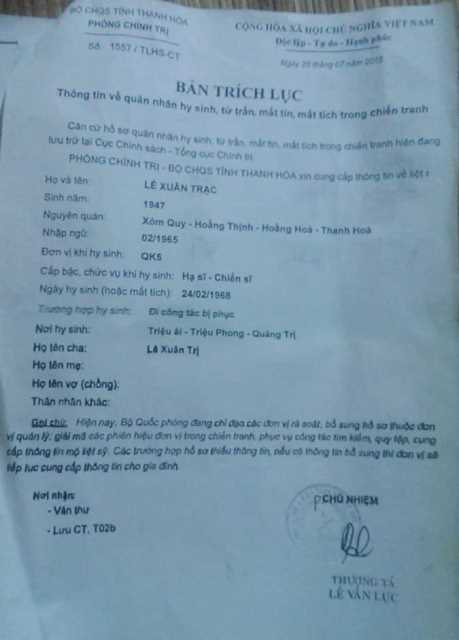 BỘ CHQS TỈNH THANH HÓA
PHÒNG CHÍNH TRỊ
Số: 1557 / TLHS-CT
CỘNG HÒA XÃ HỘI CHỦ NGHĨA VIỆT NAM
Độc lập - Tự do - Hạnh phúc
Ngày 25 tháng 07 năm
BẢN TRÍCH LỤC
Thông tin về quân nhân hy sinh, từ trần, mất tin, mất tích trong chiến tranh
Căn cứ hồ sơ quân nhân hy sinh, từ trần, mất tin, mất tích trong chiến tranh hiện đang
lưu trữ tại Cục Chính sách - Tổng cục Chính trị.
PHÒNG CHÍNH TRỊ - BỘ CHQS TỈNH THANH HÓA xin cung cấp thông tin về liệt s
Họ và tên: LÊ XUÂN TRẠC
Sinh năm: 1947
Nguyên quán: Xóm Quy - Hoằng Thịnh - Hoằng Hoá - Thanh Hoá
Nhập ngũ: 02/1965
Đơn vị khi hy sinh: QK5
Cấp bậc, chức vụ khi hy sinh: Hạ sĩ - Chiến sĩ
Ngày hy sinh (hoặc mất tích): 24/02/1968
Trường hợp hy sinh: Đi công tác bị phục
Nơi hy sinh: Triệu ái - Triệu Phong - Quảng Trị
Họ tên cha: Lê Xuân Trị
Họ tên mẹ:
Họ tên vợ (chồng):
Thân nhân khác:
Ghi chú: Hiện nay, Bộ Quốc phòng đang chỉ đạo các đơn vị rà soát, bổ sung hồ sơ thuộc đơn
vị quản lý; giải mã các phiên hiệu đơn vị trong chiến tranh, phục vụ công tác tìm kiếm, quy tập, cung
cấp thông tin mộ liệt sỹ. Các trường hợp hồ sơ thiếu thông tin, nếu có thông tin bổ sung thì đơn vị sẽ
tiếp tục cung cấp thông tin cho gia đình.
Nơi nhận:
- Văn thư
- Lưu CT, T02b
PCHỦ NHIỆM
THƯỢNG TÁ
LÊ VĂN LỰC